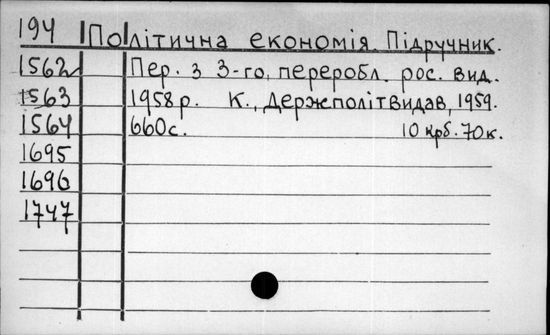 194 Політична економія. Підручник.
1562 Пер. з 3-го, переробл. рос. вид.
1563 1958 р. К., Держполітвидав, 1959.
1564 660 с. 10 крб. 70 к.
1695
1696
1747